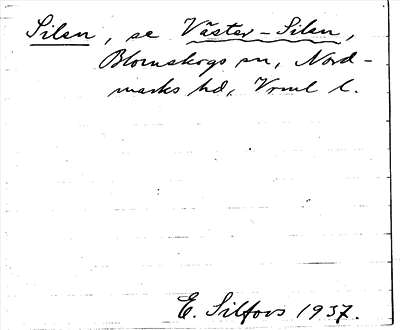 Silen, se Väster-Silen,
Blomskogs sn, Nord-
marks hd, Vrml l.
E. Silfors 1937.